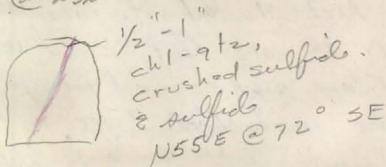 1/2" - 1"
chl-qtz,
crushed sulfide.
& sulfide
N55E @ 72° SE